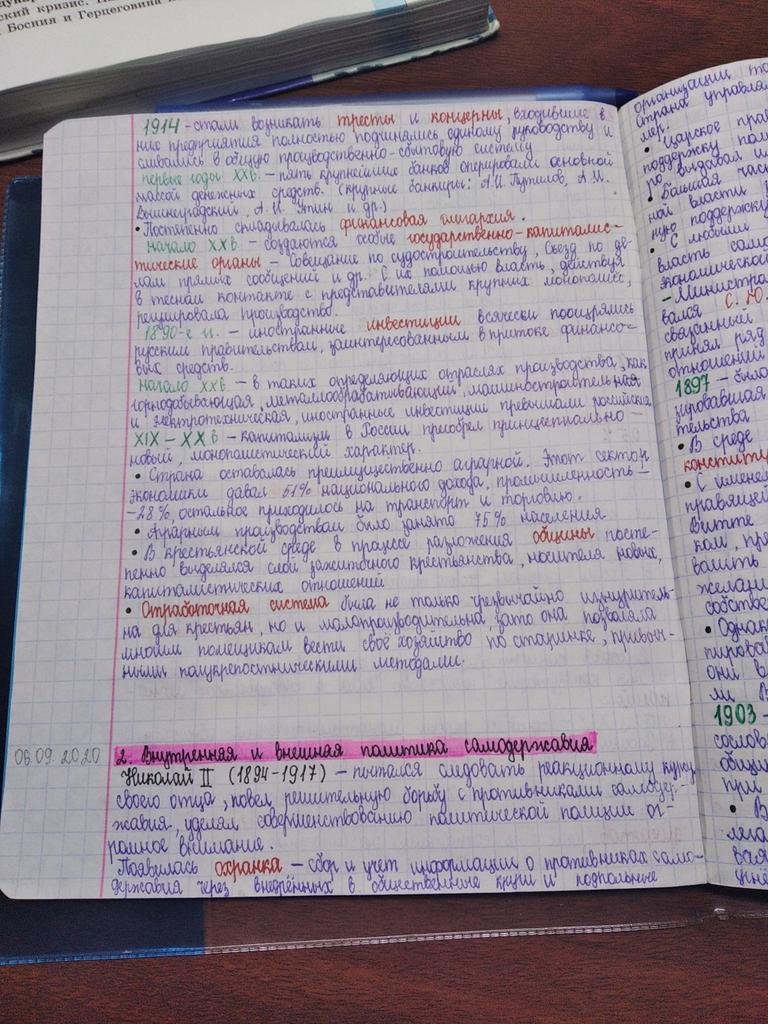 ский кризис.
Босния и Герцеговина
1914 - стали возникать тресты и концерны, входившие в
них предприятия полностью подчинялись единому руководству и
сливались в общую производственно-сбытовую систему
первые годы XXв. - пять крупнейших банков оперировали основной
массой денежных средств. (крупные банкиры: А.И. Путилов, А.И.
Вышнеградский, А.И. Утин и др.)
• Постепенно складывалась финансовая олигархия.
начало XXв - создаются особые государственно-капиталис-
тические органы - Совещание по судостроительству, Съезд по де-
лам прямых сообщений и др. С их помощью власть, действуя
в тесном контакте с представителями крупных монополий,
регулировала производство.
1890-е гг. - иностранные инвестиции всячески поощрялись
русским правительством, заинтересованным в притоке финансо-
вых средств.
начало XXв. - в таких определяющих отраслях производства, как
горнодобывающая, металлообрабатывающая, машиностроительная
и электротехническая, иностранные инвестиции превышали российские
XIX-XXв - капитализм в России приобрел принципиально
новый, монопалистический характер.
• Страна оставалась преимущественно аграрной. Этот сектор
экономики давал 51% национального дохода, промышленность -
-28%, остальное приходилось на транспорт и торговлю.
• Аграрным производством было занято 75% населения
• В крестьянской среде в процессе разложения общины посте-
пенно выделялся слой зажиточного крестьянства, носителя новых,
капиталистических отношений
• Отработочная система была не только чрезвычайно изнуритель-
на для крестьян, но и малопроизводительна, зато она позволяла
многим помещикам вести своё хозяйство по старинке, привыч-
ными полукрепостническими методами.
06.09.2020
2. Внутренняя и внешняя политика самодержавия
Николай II (1894-1917) - пытался следовать реакционному курсу
своего отца, повел решительную борьбу с противниками самодер-
жавия, уделял совершенствованию политической полиции ог-
ромное внимание.
Появилась охранка - сбор и учет информации о противниках само-
державия через внедрённых в общественные круги и подпольные
организации
страна управля
мер.
• Царское прав
поддержку
• Большая час
ной власти
ную поддержку
• С любыми
власть само
экономической
- Министра
вался С.Ю.
связанный
принял ряд
отношении
1897 - было
зировавшая
тельства
• В среде
конститу
• С именем
правящей
Витте
ком, пре
вашить
желаш
собстве
• Однак
пировав
они в
ли В
1903 -
сослов
общин
при
• В
лега
вая